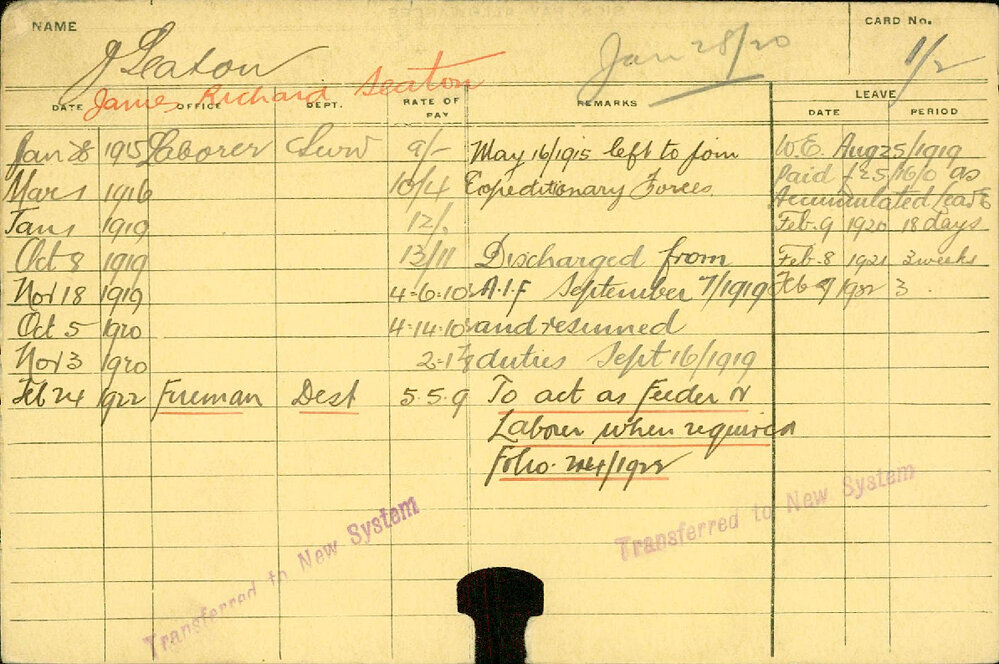 NAME
CARD No.
J Seaton
Jan 28/20
1/2
James Richard Seaton
DATE OFFICE DEPT. RATE OF PAY REMARKS LEAVE
DATE PERIOD
Jan 28 1915 Laborer 9/- May 16/1915 left to join W.E. Aug 25/1919
Mar 1 1916 10/4 Expeditionary Forces Paid £25/16/0 as
Accumulated Leave
Jan 1 1919 12/. Feb. 9 1920 18 days
Oct 8 1919 13/11 Discharged from Feb. 8 1921 3 weeks
Nov 18 1919 4-6-10 A.I.F September 7/1919 Feb 1922 3
Oct 5 1920 4-14-10 and resumed
Nov 3 1920 duties Sept 16/1919
Feb 24 1922 Fireman Dest 5.5.9 To act as Feeder or
Labourer when required
Folio 244/1922
Transferred to New System
Transferred to New System